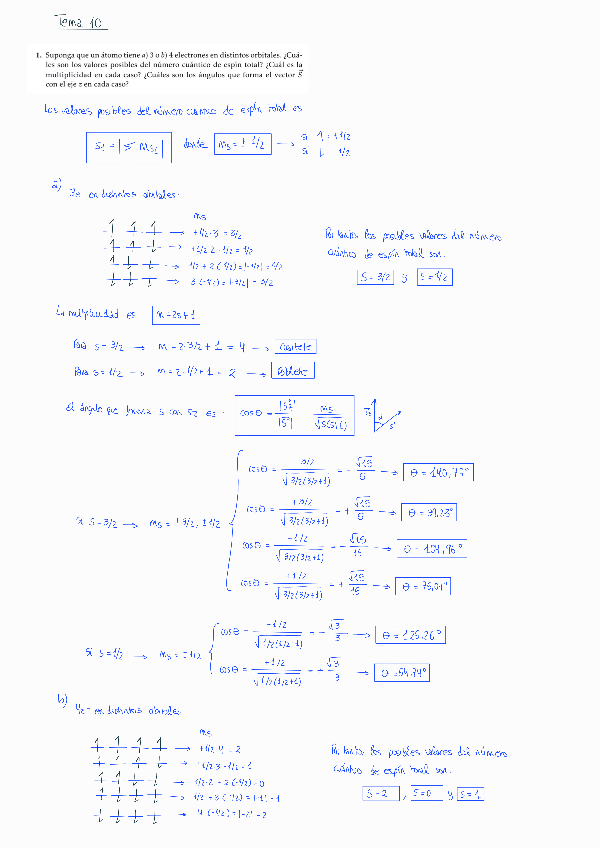 Tema 10
1. Suponga que un átomo tiene a) 3 o b) 4 electrones en distintos orbitales. ¿Cuá-
les son los valores posibles del número cuántico de espín total? ¿Cuál es la
multiplicidad en cada caso? ¿Cuáles son los ángulos que forma el vector S⃗
con el eje z en cada caso?
Los valores posibles del número cuántico de espín total es
donde ms = ± 1/2 → si ↑ = +1/2
si ↓ 1/2
a) 3e⁻ en distintos orbitales.
ms
→ +1/2·3 = 3/2
→ +1/2·2 - 1/2 = 1/2
→ 1/2 + 2(-1/2) = |-1/2| = 1/2
→ 3(-1/2) = |-3/2| = 3/2
Por tanto los posibles valores del número
cuántico de espín total son.
S = 3/2 y S = 1/2
La multiplicidad es m = 2s+1
Para s = 3/2 → m = 2·3/2 + 1 = 4 →
Para s = 1/2 → m = 2·1/2 + 1 = 2 → Doblete
El ángulo que forma s con sz es. cos θ = ms / √s(s+1)
cos θ = 3/2 / √3/2(3/2+1) = - √15 / 5 → θ = 140,77°
cos θ = +3/2 / √3/2(3/2+1) = + √15 / 5 → θ = 39,23°
si S = 3/2 → ms = ± 3/2, ± 1/2
cos θ = -1/2 / √3/2(3/2+1) = - √15 / 15 → θ = 104,96°
cos θ = +1/2 / √3/2(3/2+1) = + √15 / 15 → θ = 75,04°
cos θ = -1/2 / √1/2(1/2+1) = - √3 / 3 → θ = 125,26°
si s = 1/2 → ms = ± 1/2
cos θ = +1/2 / √1/2(1/2+1) = + √3 / 3 → θ = 54,74°
b) 4e⁻ en distintos orbitales.
ms
→ +1/2·4 = 2
→ +1/2·3 - 1/2 = 1
→ 1/2·2 + 2(-1/2) = 0
→ 1/2 + 3(-1/2) = |-1| = 1
→ 4(-1/2) = |-2| = 2
Por tanto los posibles valores del número
cuántico de espín total son.
S = 2 , S = 0 y S = 1